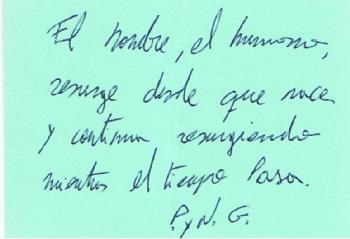 El hombre, el humano,
resurge desde que nace
y continua resurgiendo
mientras el tiempo Pasa.
P. y N. G.